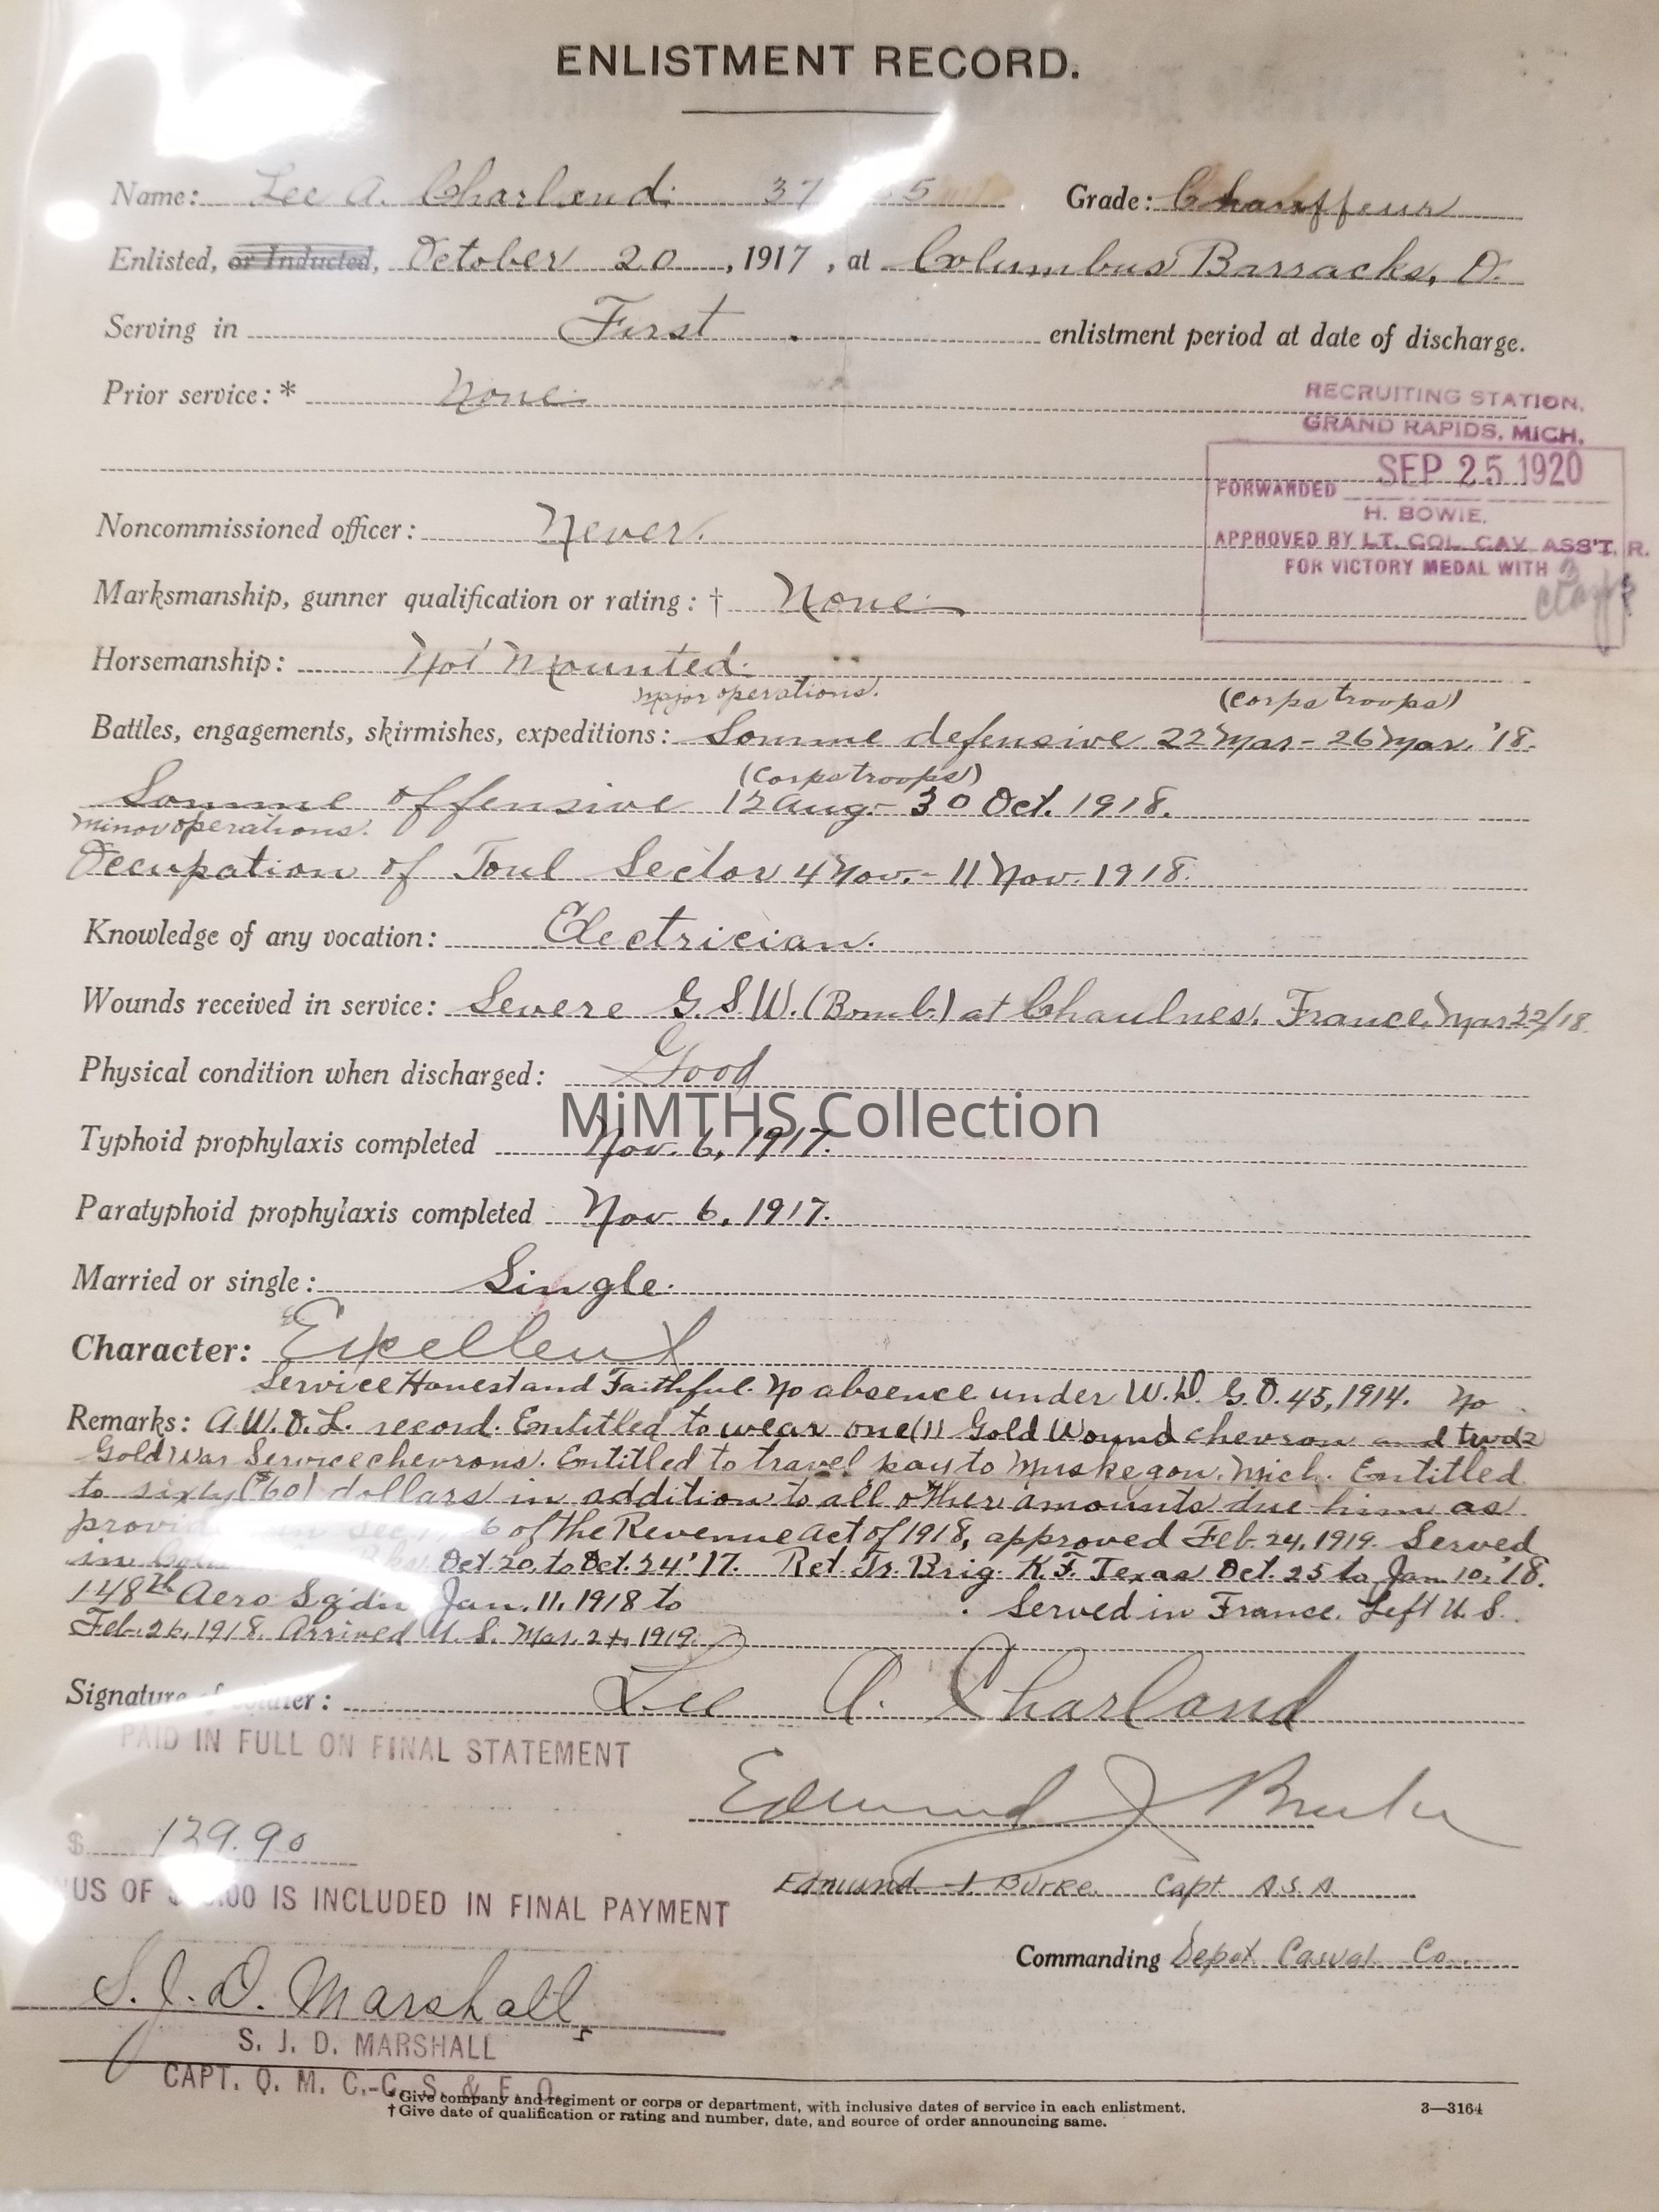 ENLISTMENT RECORD.
Name: Lee A. Charland. 37 5 Grade: Chauffeur
Enlisted, or Inducted, October 20, 1917, at Columbus Barracks, O.
Serving in First. enlistment period at date of discharge.
Prior service:* None.
RECRUITING STATION,
GRAND RAPIDS, MICH.
SEP 25 1920
FORWARDED
H. BOWIE,
APPROVED BY LT. COL. CAV. ASS'T. R.
FOR VICTORY MEDAL WITH 3
clasps
Noncommissioned officer: Never.
Marksmanship, gunner qualification or rating: † None.
Horsemanship: Not Mounted.
major operations. (Corps troops)
Battles, engagements, skirmishes, expeditions: Somme defensive 22 Mar - 26 Mar. '18.
(Corps troops)
Somme offensive 12 Aug. - 30 Oct. 1918.
minor operations.
Occupation of Toul Sector 4 Nov. - 11 Nov. 1918.
Knowledge of any vocation: Electrician.
Wounds received in service: Severe G.S.W. (Bomb) at Chaulnes, France, Mar 22/18
Physical condition when discharged: Good
MiMTHS Collection
Typhoid prophylaxis completed Nov. 6, 1917.
Paratyphoid prophylaxis completed Nov 6, 1917.
Married or single: Single.
Character: Excellent
Service Honest and Faithful. No absence under W.D. G.O. 45, 1914. No
Remarks: A.W.O.L. record. Entitled to wear one (1) Gold Wound chevron and two 2
Gold War Service chevrons. Entitled to travel pay to Muskegon, Mich. Entitled
to sixty ($60) dollars in addition to all other amounts due him as
in Sec. 6 of the Revenue Act of 1918, approved Feb. 24, 1919. Served
in Bks. Oct 20, to Oct. 24 '17. Ret. Tr. Brig. K.F. Texas Oct. 25 to Jan 10, '18.
148th Aero Sqdn Jan. 11, 1918 to . Served in France. Left U.S.
Feb. 26, 1918. Arrived U.S. Mar. 1919.
Signature of soldier: Lee A. Charland
PAID IN FULL ON FINAL STATEMENT
Edmund J Burke
$ 129.90
Edmund J. Burke. Capt A.S.A.
US OF $ .00 IS INCLUDED IN FINAL PAYMENT
Commanding Depot Casual Co.
S. J. D. Marshall
S. J. D. MARSHALL
CAPT. Q. M. C.-C. S. & F. O.
*Give company and regiment or corps or department, with inclusive dates of service in each enlistment.
†Give date of qualification or rating and number, date, and source of order announcing same.
3—3164